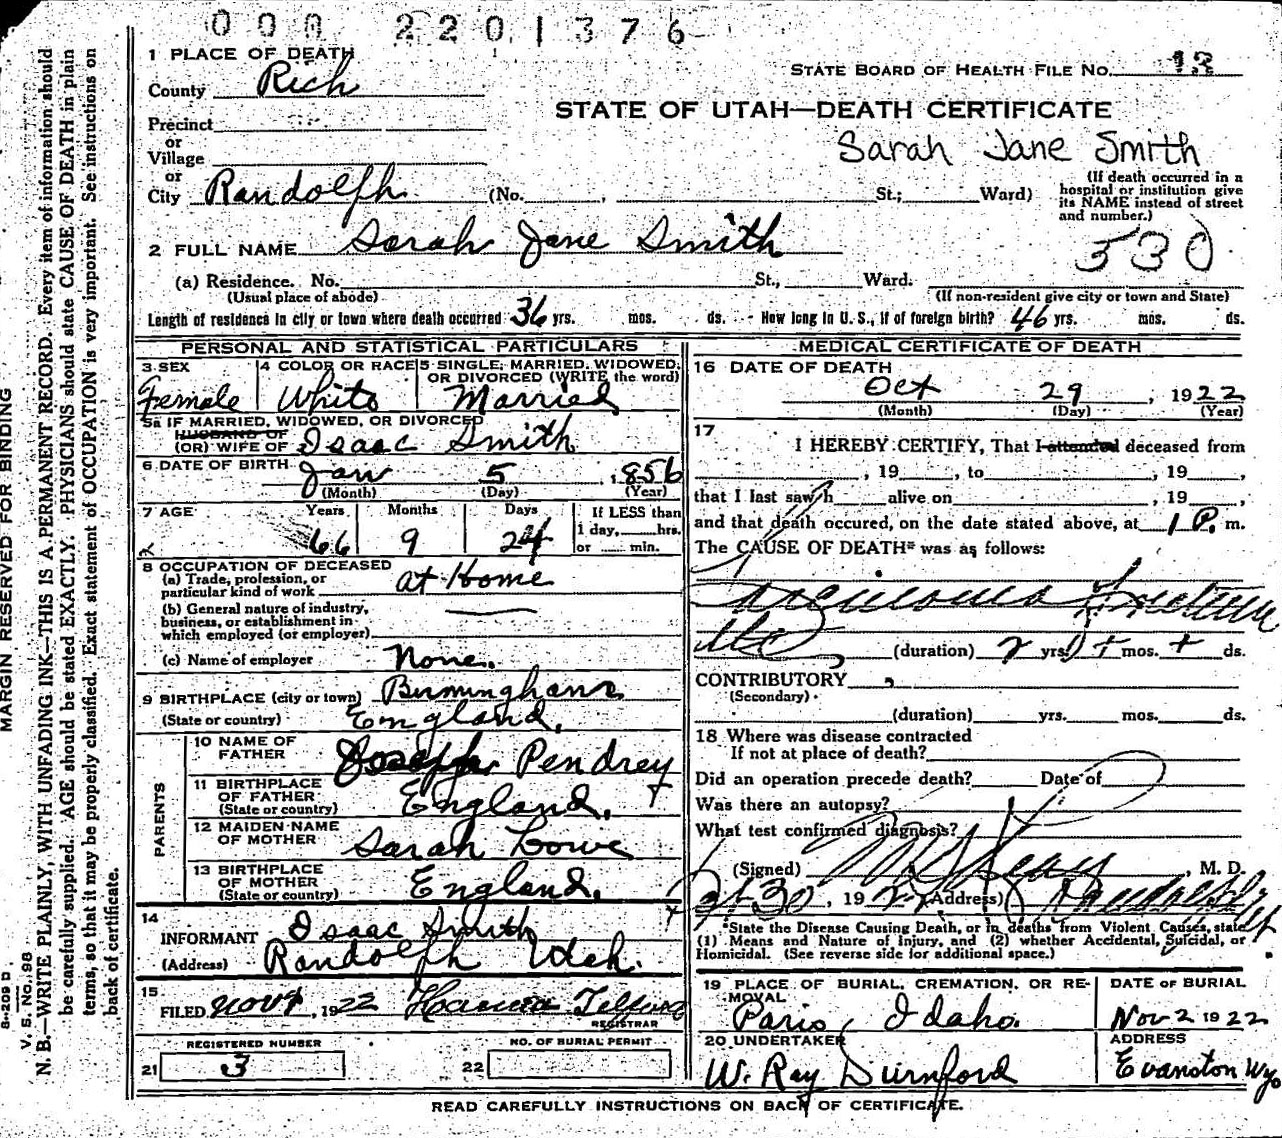 000 2201376
1 PLACE OF DEATH
County Rich
STATE BOARD OF HEALTH FILE No. 13
STATE OF UTAH—DEATH CERTIFICATE
Precinct
or
Village
or
City Randolph (No. , St.; Ward)
Sarah Jane Smith
(If death occurred in a
hospital or institution give
its NAME instead of street
and number.)
2 FULL NAME Sarah Jane Smith
530
(a) Residence. No. St., Ward.
(Usual place of abode) (If non-resident give city or town and State)
Length of residence in city or town where death occurred 36 yrs. mos. ds. How long in U. S., if of foreign birth? 46 yrs. mos. ds.
PERSONAL AND STATISTICAL PARTICULARS
3 SEX Female
4 COLOR OR RACE White
5 SINGLE, MARRIED, WIDOWED, OR DIVORCED (WRITE the word) Married
5a IF MARRIED, WIDOWED, OR DIVORCED
HUSBAND OF
(OR) WIFE OF Isaac Smith
6 DATE OF BIRTH Jan 5, 1856
(Month) (Day) (Year)
7 AGE Years Months Days If LESS than
66 9 24 1 day, hrs.
or min.
8 OCCUPATION OF DECEASED
(a) Trade, profession, or
particular kind of work at Home
(b) General nature of industry,
business, or establishment in
which employed (or employer)
(c) Name of employer None.
9 BIRTHPLACE (city or town) Birmingham
(State or country) England.
PARENTS
10 NAME OF
FATHER Joseph Pendrey
11 BIRTHPLACE
OF FATHER
(State or country) England.
12 MAIDEN NAME
OF MOTHER Sarah Lowe
13 BIRTHPLACE
OF MOTHER
(State or country) England.
14
INFORMANT Isaac Smith
(Address) Randolph Utah.
15
FILED Nov 4, 1922 Telford
REGISTRAR
REGISTERED NUMBER
21 3
NO. OF BURIAL PERMIT
22
MEDICAL CERTIFICATE OF DEATH
16 DATE OF DEATH
Oct 29, 1922
(Month) (Day) (Year)
17
I HEREBY CERTIFY, That I attended deceased from
, 19 , to , 19 ,
that I last saw h alive on , 19 ,
and that death occured, on the date stated above, at 1 P. m.
The CAUSE OF DEATH* was as follows:
Carcinoma
(duration) 2 yrs. + mos. + ds.
CONTRIBUTORY
(Secondary)
(duration) yrs. mos. ds.
18 Where was disease contracted
If not at place of death?
Did an operation precede death? Date of
Was there an autopsy?
What test confirmed diagnosis?
(Signed) , M. D.
30, 1922 (Address) Randolph Ut
*State the Disease Causing Death, or in deaths from Violent Causes, state
(1) Means and Nature of Injury, and (2) whether Accidental, Suicidal, or
Homicidal. (See reverse side for additional space.)
19 PLACE OF BURIAL, CREMATION, OR RE-
MOVAL
Paris, Idaho.
DATE OF BURIAL
Nov 2 1922
20 UNDERTAKER
W. Ray Durnford
ADDRESS
Evanston Wyo
READ CAREFULLY INSTRUCTIONS ON BACK OF CERTIFICATE.
MARGIN RESERVED FOR BINDING
S-209 D
V. S. NO. 98
N. B.—WRITE PLAINLY, WITH UNFADING INK—THIS IS A PERMANENT RECORD. Every item of information should
be carefully supplied. AGE should be stated EXACTLY. PHYSICIANS should state CAUSE OF DEATH in plain
terms, so that it may be properly classified. Exact statement of OCCUPATION is very important. See instructions on
back of certificate.